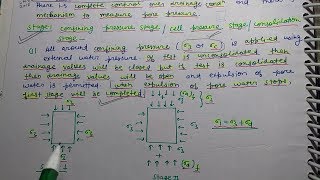 there is complete control over drainage cond^n and there
mechanism to measure pore pressure
Stage I confining pressure stage / cell pressure stage / consolidation
stage -
Q) All around confining pressure (σ3 or σc) is applied using
unconsolidated then
drainage valves will be closed but if the test is consolidated
then drainage valve will be open and expulsion of pore
water is permitted. when expulsion of pore water stops,
first stage will be completed.
σ3
σ3
σ3
σ3
σ3
(σd)f
σ1 = σ3 + σd
σ3
σ3
(σd)f
Stage II